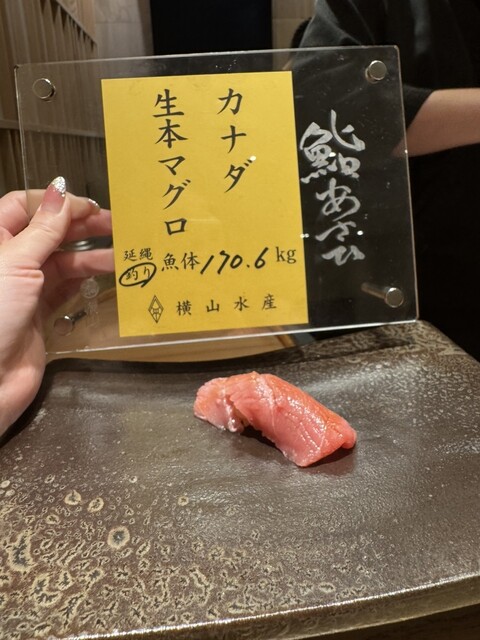 カナダ
生本マグロ
延縄
釣り
魚体170.6kg
横山水産
鮨あさひ